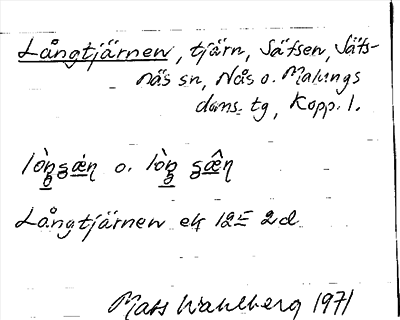 Långtjärnen, tjärn, Säfsen, Säfs-
näs sn, Nås o. Malungs
doms. tg, Kopp. l.
lòŋgæ̀ŋ o. lòŋ gæ̂ŋ
Långtjärnen ek 12E 2d
Mats Wahlberg 1971